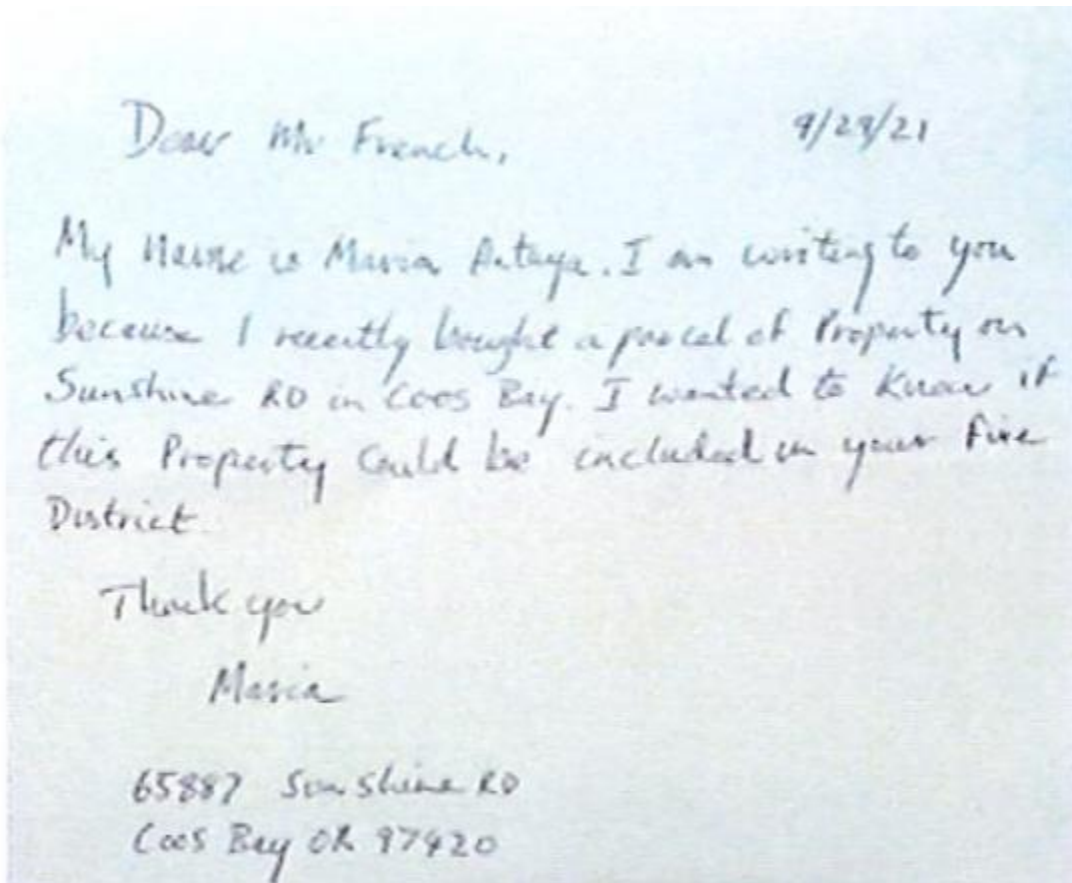 Dear Mr French,
9/29/21
My Name is Maria Artaya. I am writing to you
because I recently bought a parcel of Property on
Sunshine RD in Coos Bay. I wanted to know if
this Property Could be included in your Fire
District.
Thank you
Maria
65887 Sunshine RD
Coos Bay OR 97420